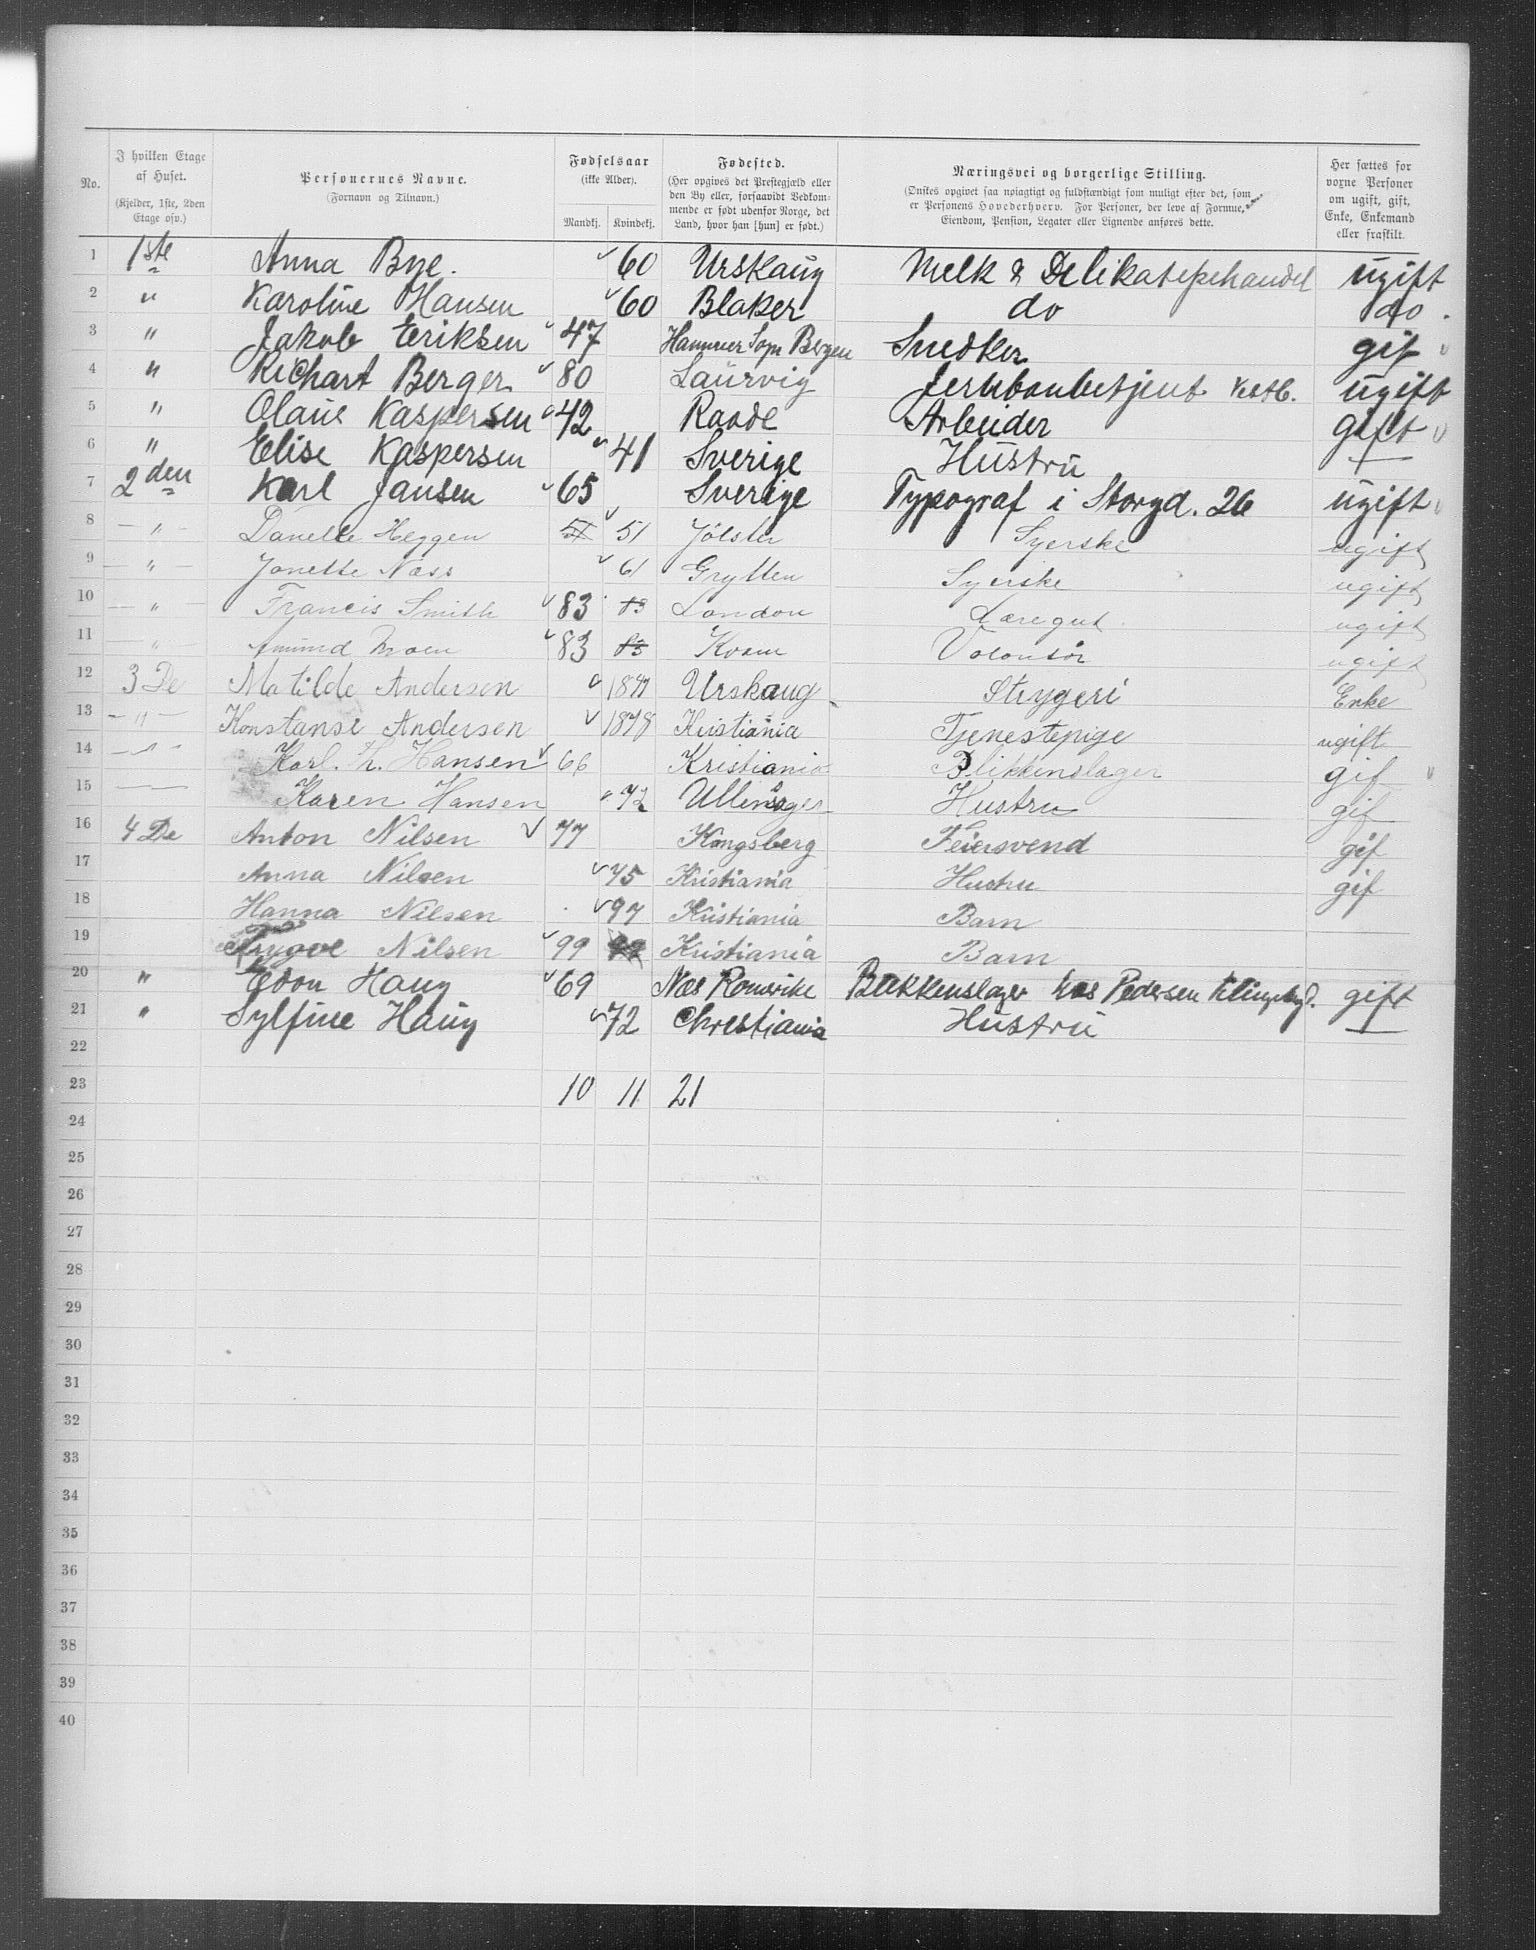 No. I hvilken Etage af Huset. (Kjelder, 1ste, 2den Etage osv.) Personernes Navne. (Fornavn og Tilnavn.) Fødselsaar (ikke Alder). Mandkj. Kvindekj. Fødested. (Her opgives det Prestegjæld eller den By eller, forsaavidt Vedkommende er født udenfor Norge, det Land, hvor han [hun] er født.) Næringsvei og borgerlige Stilling. (Ønskes opgivet saa nøiagtigt og fuldstændigt som muligt efter det, som er Personens Hovederhverv. For Personer, der leve af Formue, Eiendom, Pension, Legater eller Lignende anføres dette.) Her sættes for voxne Personer om ugift, gift, Enke, Enkemand eller fraskilt.
1 1ste Anna Bye. 60 Urskaug Melk & Delikatessehandel ugift
2 " Karoline Hansen 60 Blaker do do.
3 " Jakob Eriksen 47 Hammer Sogn Bergen Snedker gif
4 " Richart Berger 80 Laurvig Jernbanbetjent Vestb. ugift
5 " Olaus Kaspersen 42 Raade Arbeider gift
6 " Elise Kaspersen 41 Sverige Hustru —
7 2den Karl Jansen 65 Sverige Typograf i Storgd. 26 ugift
8 — " — Danelle Heggen 51 51 Jølster Syerske ugift
9 — " — Jonette Næss 61 Grytten Syerske ugift
10 — " — Francis Smith 83 83 London Læregut ugift
11 — " — Amund Moen 83 83 Kvam Volontør ugift
12 3De Matilde Andersen Urskaug Strygeri Enke
13 — " — Konstanse Andersen 1878 Kristiania Tjenestepige ugift
14 — " — Karl. Th. Hansen 66 Kristiania Blikkenslager gif
15 — — Karen Hansen 72 Ullensager Hustru gif
16 4De Anton Nilsen 77 Kongsberg Feiersvend gif
17 Anna Nilsen 75 Kristiania Hustru gif
18 Hanna Nilsen 97 Kristiania Barn
19 Trygve Nilsen 99 99 Kristiania Barn
20 " Edon Haug 69 Næs Romerike Blikkenslager hos Pedersen gift
21 " Sylfine Haug 72 Christiania Hustru —
22
23 10 11 21
24
25
26
27
28
29
30
31
32
33
34
35
36
37
38
39
40